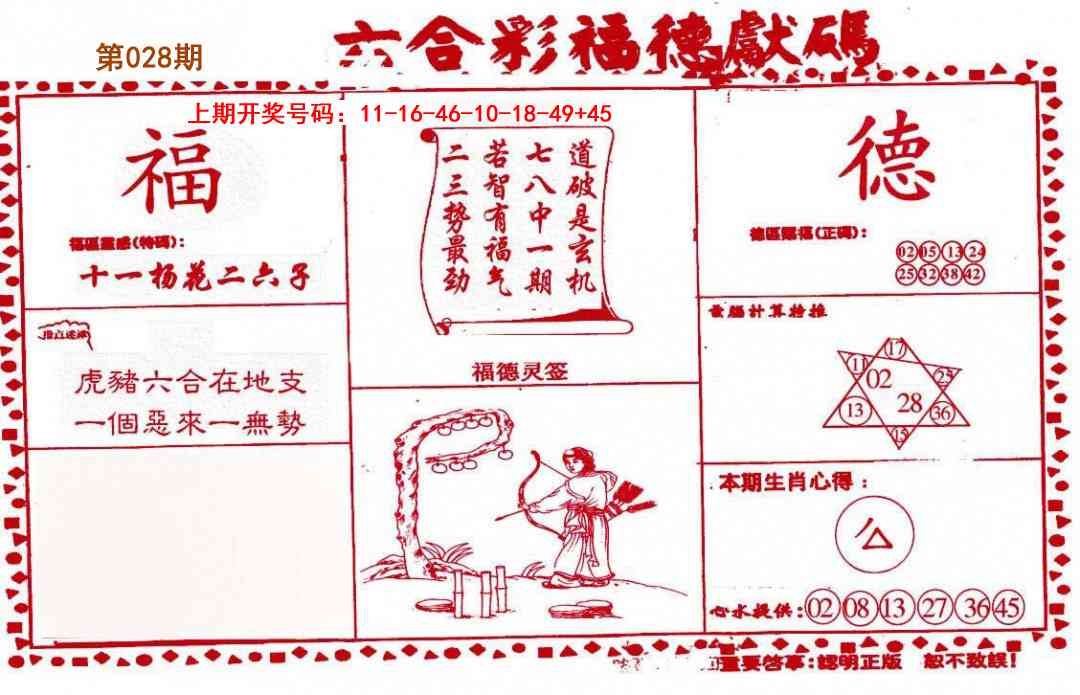 第028期
六合彩福德獻碼
上期开奖号码：11-16-46-10-18-49+45
福
福區靈感(特碼)：
十一杨花二六子
虎豬六合在地支
一個惡來一無勢
道破是玄机
七八中一期
若智有福气
二三势最劲
福德灵签
德
德區賜福(正碼)：
02 05 13 24
25 32 38 42
電腦計算特推
17
11 02 25
13 28 36
15
本期生肖心得：
心水提供：02 08 13 27 36 45
重要啓事：認明正版 恕不致誤！